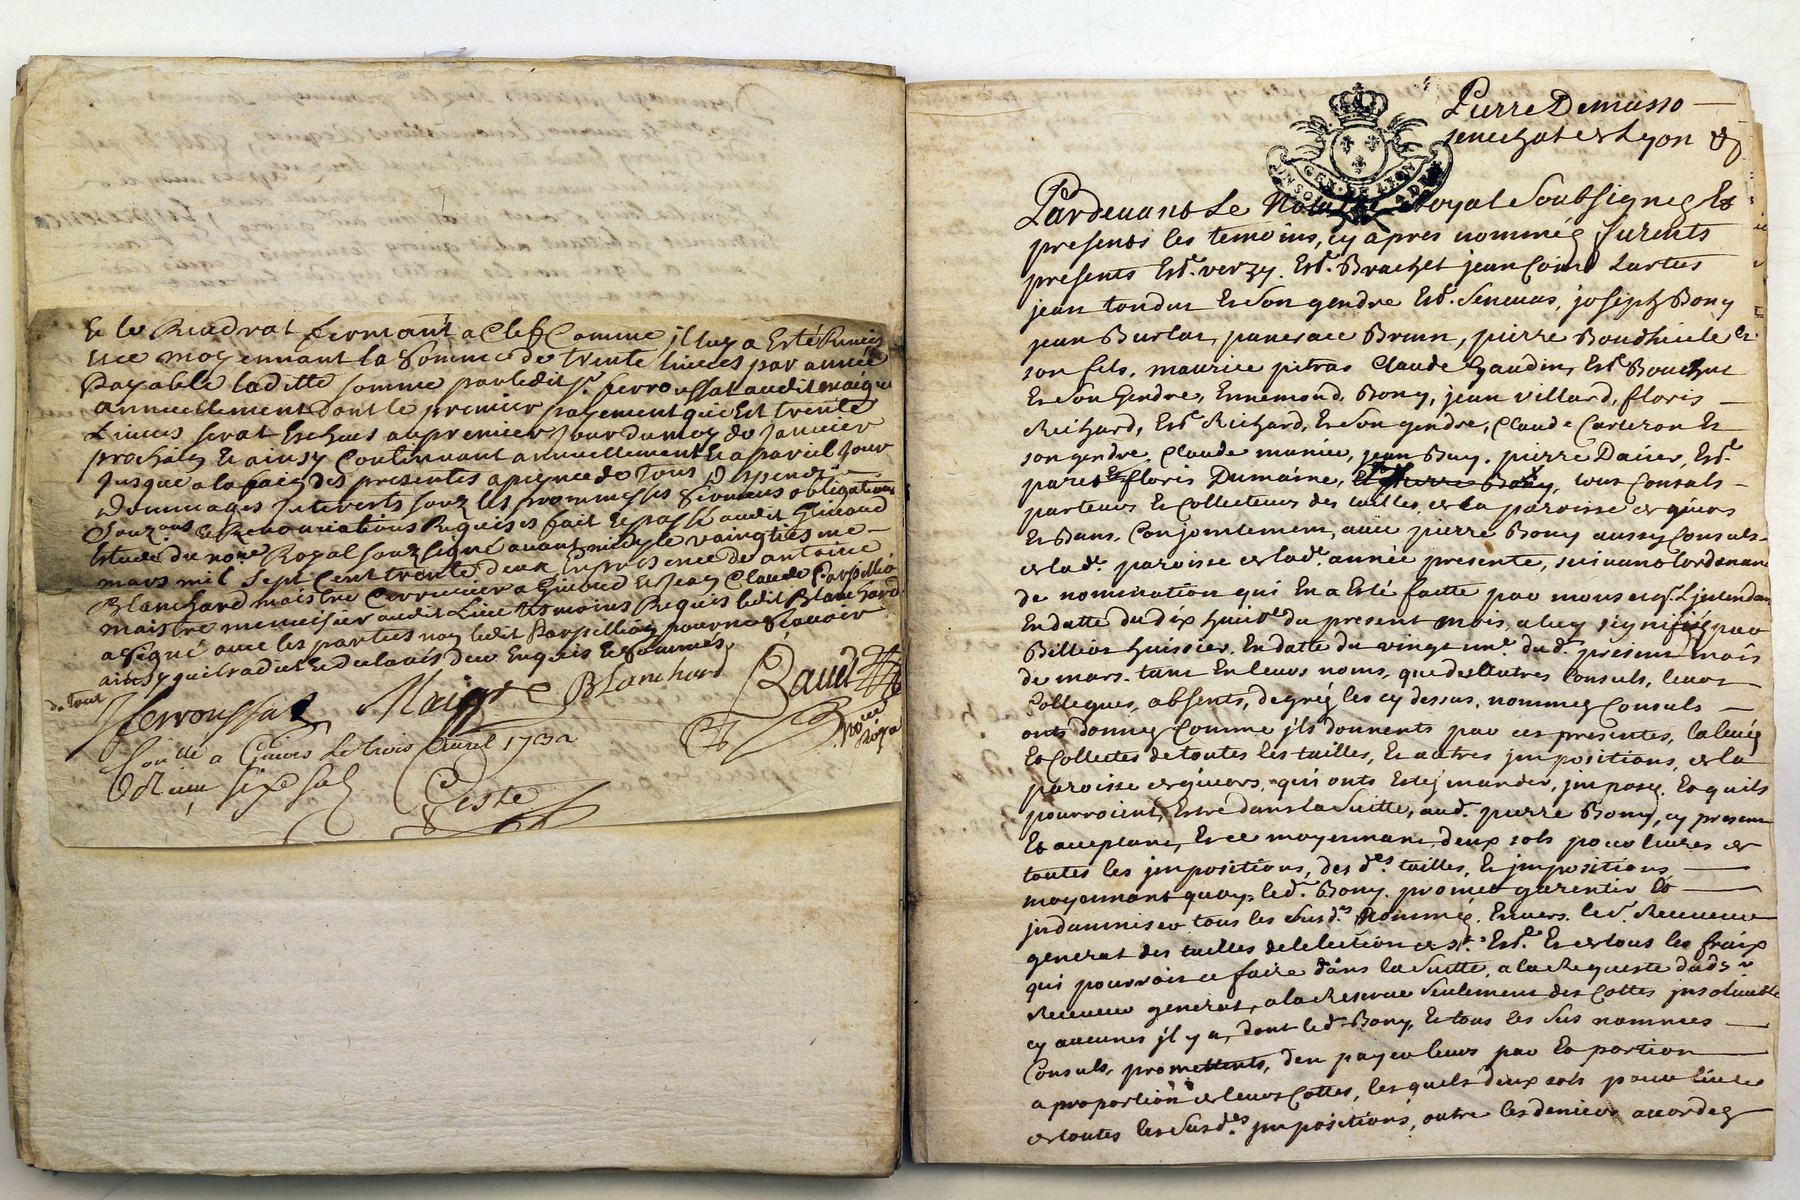 Et le Cuadrat fermant a Clef Comme il luy a Esté Remis
Et ce moyennant la somme de trente livres par année
payable laditte somme par ledit sr. ferroussat audit maigre
annuellement dont le premier payement qui Est trente
Livres serat Escheus au premier jour du moy de Janvier
prochain Et ainsy Continuant annuellement Et a pareil jour
jusque a la fain des presentes a peyne de tous Despens
Dommages Interests souz les promesses sermens obligations
souz ons Et Renonciations Requises fait Et passé audit Givord
Estude du nore. Royal souzsigné avant midy le vaingtiesme
mars mil sept Cent trente deux En presence de antoine
Blanchard maistre Cerrurier a Givord Et Jean Claude Parpillion
maistre menuisier audit Lieu tesmoins Requis ledit Blanchard
a signé avec les parties non ledit Parpillion pour ne scavoir
ainsy quil a dit Et declarés deu Enquis Et sommes
de tout
ferroussat Maigre Blanchard Baud
nore
royal
Conllé a Givors Le trois Avril 1732
Reçu six sols
Peste
Pierre Demasso
senechal de Lyon &
GEN. DE LYON
Pardevant Le Notaire Royal Soubsigneg Et
presents les temoins, cy apres nommég furents
presents Estne. verzy. Estne. Brachet jean Lartus
jean tondu Et son gendre Estne. senevas, joseph Bony
jean Burlat, pancrace Brun, pierre Boudhiele Et
son fils, maurice pitras Claude Gaudin, Estne Bouchut
Et son Gendre, Ennemond Bony, jean villard, floris
Richard, Estne Richard, Et son gendre, Claude Carteron Et
son gendre, Claude muniée, jean Buy, pierre Dacier, Estne.
paret Et floris Dumaine, Et Pierre Bony, tous Consuls
parteurs Et Collecteurs des tailles de la paroisse de givors
Et Bans, Conjointement, avec pierre Bony aussy Consuls
de lade. paroisse de lade. année presente, suivant lordonance
de nomination qui En a Esté faitte par monseigr. Lintendan
En datte du dix huire du present mois, a luy signifié par
Billion huissier, En datte du vingt un. du d. present mois
de mars. tant En leurs noms, que des autres Consuls, leurs
Collegues, absents, de gréz les cy dessus, nommez Consuls
onts donnez Comme jls donnents par ces presentes, la levéz
Et Collectes de toutes les tailles, Et autres jmpositions, de la
paroisse de givors, qui onts Estéz mandéz, jmposéz, Et quils
pourroient Estre dans la Suitte, aud. pierre Bony, cy present
Et acceptant, Et ce moyennant, deux sols pour livres de
toutes les jmpositions, des des. tailles, Et jmpositions
moyennant quoy, led. Bony promet garentir Et
jndamniser tous les susd.es Nomméz Envers le sr. Receveur
general des tailles de lelection de St. Estne. Et de tous les fraix
qui pourroit ce faire dans la Suitte, a la Requeste dud. sr
Receveur general, a la Reserve seulement des Cottes jnsolvable
cy aucunes jl y a, dont led. Bony, Et tous les sus nommées
Consuls, promettents, den payer leurs par Et portion
a proportion de leurs Cottes, lesquels deux sols pour livre
de toutes les susd.es jmpositions, outre les deniers accordez